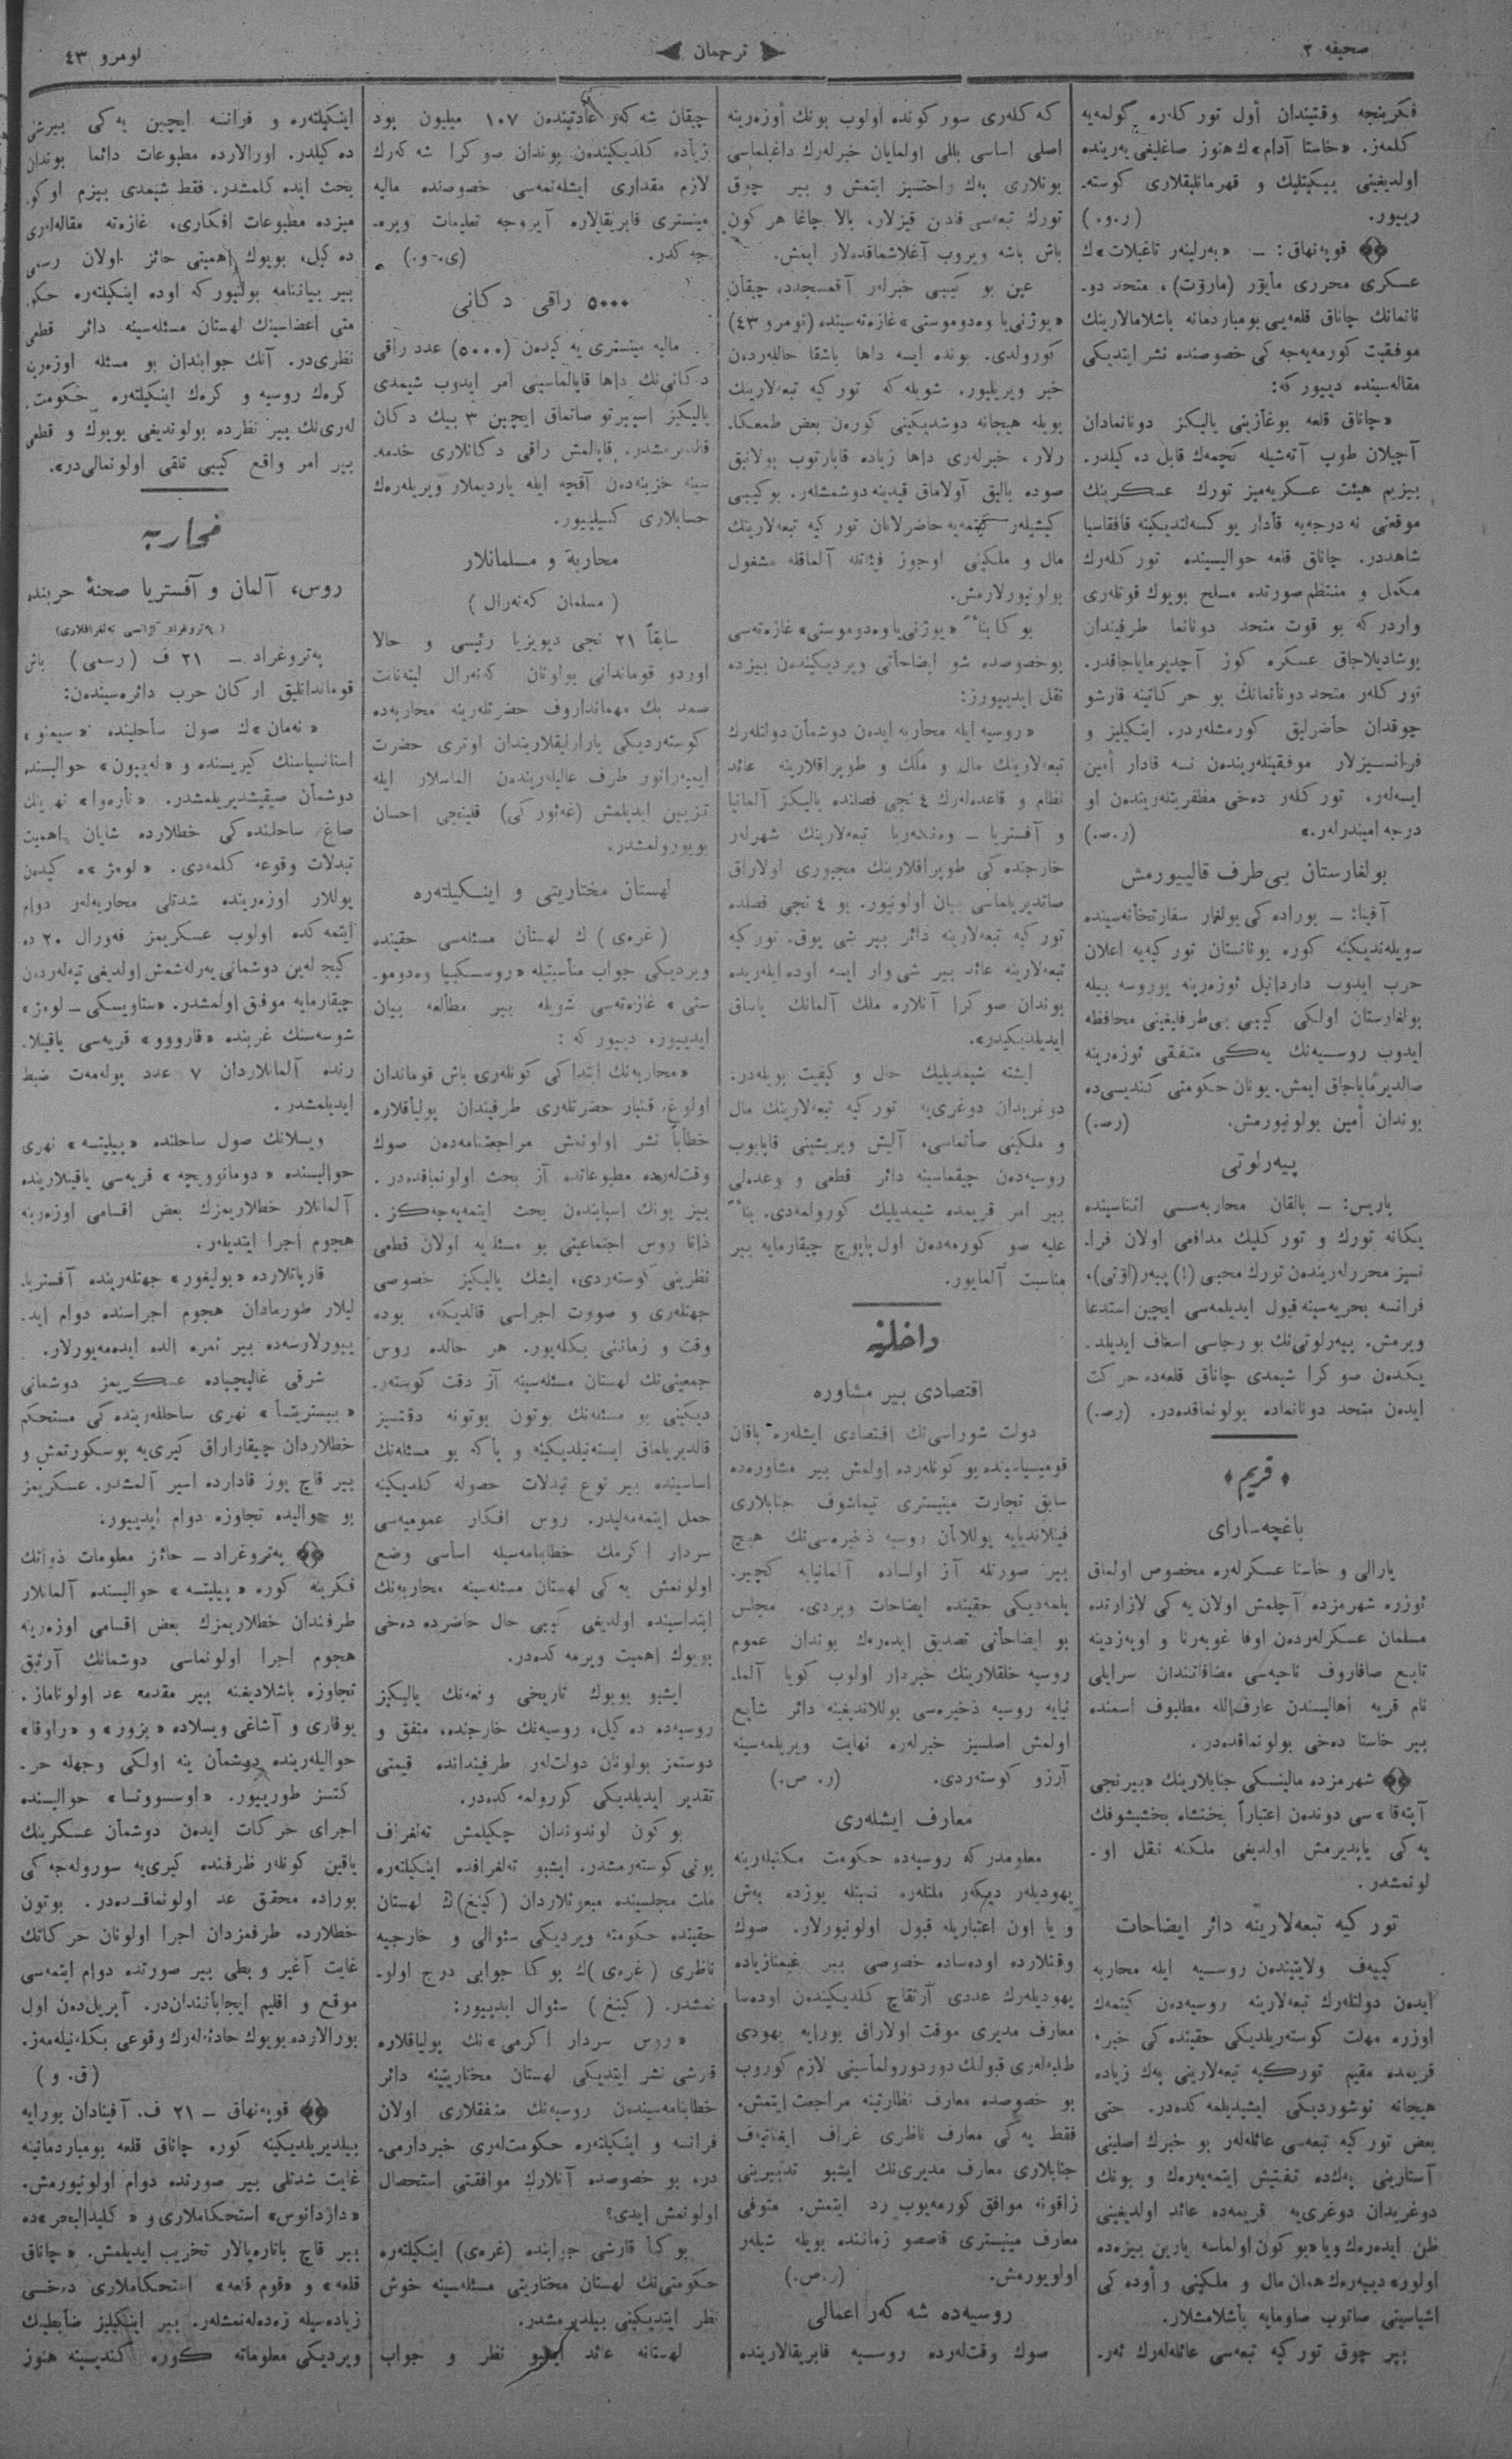 صحیفه ۲
ترجمان
نومرو ٤٣
فکرینجه وقتیندان أول تورکلەره گولمەیه
کلمەز. «خاستا آدام»ك هنوز صاغلیغی یەرینده
اولدیغینی ییکیتلیك و قهرمانلیقلاری کوستە‌ـ
رییور. (ر.و.)
قوپەنهاق: ـ «بەرلینەر تاغبلات»ك
عسکری محرری مایۆر (مارۆت)، متحد دو‌ـ
نانمانك چاناق قلعەیی بومباردمانه باشلامالارینك
موفقیت کورمەیەجەکی خصوصنده نشر ایتدیکی
مقالەسینده دییورکه:
«چاناق قلعه بوغازینی یالیکز دونانمادان
آچیلان طوپ آتەشیله کچمەك قابل دەکیلدر.
بیزیم هیئت عسکریەمیز تورك عسکرینك
موقعنی نه درجەیه قادار یوکسەلتدیکینه قافقاسیا
شاهددر. چاناق قلعه حوالیسینده تورکلەرك
مکمل و منتظم صورتده مسلح بویوك قوتلەری
واردرکه بو قوت متحد دونانما طرفیندان
بوشادیلاجاق عسکره کوز آچدیرمایاجاقدر.
تورکلەر متحد دونانمانك بو حرکاتینه قارشو
چوقدان حاضرلیق کورمشلەردر. اینکیلیز و
فرانسیزلار موفقیتلەریندەن نـه قادار أمین
ایسەلەر، تورکلەر دەخی مظفریتلەریندەن او
درجه امیندرلەر.» (ر.ص.)
بولغارستان بی‌طرف قالییورمش
آفینا: ـ بورادەکی بولغار سفارتخانەسینده
سویلەندیکینه کوره یونانستان تورکیەیه اعلان
حرب ایدوب داردانیل ئوزەرینه یوروسه بیله
بولغارستان اولکی کیبی بی‌طرفلیغینی محافظه
ایدوب روسـیەنك یەکی متفقی ئوزەرینه
صالدیرمایاجاق ایمش. یونان حکومتی کندیسی‌ده
بوندان أمین بولونیورمش. (رص.)
پیەرلوتی
پاریس: ـ بالقان محاربەسـی اثناسینده
یکانه تورك و تورکلیك مدافعی اولان فرا‌ـ
نسیز محررلەریندەن تورك محبی (!) پییەر (لۆتی)،
فرانسه بحریەسینه قبول ایدیلمەسی ایچین استدعا
ویرمش. پیەرلوتی‌نك بو رجاسی اسعاف ایدیلد‌ـ
یکدەن صوکرا شیمدی چاناق قلعەده حرکت
ایدەن متحد دونانماده بولونماقدەدر. (رص.)
﴿ قریم ﴾
باغچەسارای
یارالی و خاستا عسکرلەره مخصوص اولماق
ئوزره شهرمزده آچلمش اولان یەکی لازارتده
مسلمان عسکرلەردەن اوفا غوبەرنا و اویەزدینه
تابـع صافاروف ناحیەسی مضافاتندان سرایلی
نام قریه أهالیسندن عارف‌الله مطلبوف اسمنده
بیر خاستا دەخی بولونماقدەدر.
شهرمزده مالینسکی جنابلارینك «بیرنجی
آپتەقا»سی دوندەن اعتباراً بختشاه بخشیشوفك
یەکی یاپدیرمش اولدیغی ملکنه نقل او‌ـ
لونمشدر.
تورکیه تبعەلارینه دائر ایضاحات
کییەف ولایتیندەن روسـیه ایله محاربه
ایدەن دولتلەرك تبعەلارینه روسیەدەن کیتمەك
اوزره مهلت کوستەریلدیکی حقیندەکی خبر،
قریمده مقیم تورکـیه تبعەلارینی پەك زیاده
هیجانه توشوردیکی ایشیدیلمەکدەدر. حتی
بعض تورکیه تبعەسی عائلەلەر بو خبرك اصلینی
آستارینی پەك‌ده تفتیش ایتمەیەرەك و بونك
دوغریدان دوغری‌یه قریمەده عائد اولدیغینی
ظن ایدەرەك ویا «بوکون اولماسه یارین بیزەده
اولور» دییەرەك همان مال و ملکینی و أودەکی
اشیاسینی صاتوب صاومایه باشلامشلار.
بیر چوق تورکیه تبعەسی عائلەلەرك ئەر‌ـ
کەکلەری سورکونده اولوب بونك أوزەرینه
اصلی اساسی بللی اولمایان خبرلەرك داغیلماسی
بونلاری پەك راحتسیز ایتمش و بیر چوق
تورك تبعەسی قادن قیزلار، بالا چاغا هر کون
باش باشه ویروب آغلاشماقدەلار ایمش.
عین بو کیبی خبرلەر آقمسجدده چیقان
«یوژنی‌یا وەدوموستی» غازەتەسینده (نومرو ٤٣)
کورولدی. بونده ایسه داها باشقا حاللەردەن
خبر ویریلیور. شویلەکه تورکیه تبعەلارینك
بویله هیجانه دوشدیکینی کورەن بعض طمعکا‌ـ
رلار، خبرلەری داها زیاده قابارتوب بولانیق
صوده بالیق آولاماق قیدینه دوشمشلەر. بوکیبی
کیشیلەر کیتمەیه حاضرلانان تورکیه تبعەلارینك
مال و ملکینی اوجوز فیئاتله آلماقله مشغول
بولونیورلارمش.
بوکا بناءً «یوژنی‌یا وەدوموستی» غازەتەسی
بوخصوصده شو ایضاحاتی ویردیکیندەن بیزده
نقل ایدییورز:
«روسیه ایله محاربه ایدەن دوشمان دولتلەرك
تبعەلارینك مال و ملك و طوپراقلارینه عائد
نظام و قاعدەلەرك ٤ نجی فصلنده یالیکز آلمانیا
و آفستریا ـ وەنگەریا تبعەلارینك شهرلەر
خارجندەکی طوپراقلارینك مجبوری اولاراق
صاتدیریلماسی بیان اولونیور. بو ٤ نجی فصلده
تورکیه تبعەلارینه دائر بیر شی یوق. تورکیه
تبعەلارینه عائد بیر شی وار ایسه اوده ایلەریده
بوندان صوکرا آنلاره ملك آلمانك یاساق
ایدیلدیکیدر».
ایشته شیمدیلیك حال و کیفیت بویلەدر.
دوغریدان دوغری‌یه تورکیه تبعەلارینك مال
و ملکینی صاتماسی، آلیش ویریشینی قاپایوب
روسیەدەن چیقماسینه دائر قطعی و وعدەلی
بیر امر قریمده شیمدیلیك کورولمەدی. بناءً
علیه صو کورمەدەن اول پاپوچ چیقارمایه بیر
مناسبت آلمایور.
داخلیه
اقتصادی بیر مشاوره
دولت شوراسی‌نك اقتصادی ایشلەره باقان
قومیسیاسینده بو کونلەرده اولمش بیر مشاورەده
سابق تجارت مینیستری تیماشوف جنابلاری
فینلاندیایه یوللانان روسیه ذخیرەسی‌نك هیچ
بیر صورتله آز اولساده آلمانیایه کچیر‌ـ
یلمەدیکی حقینده ایضاحات ویردی. مجلس
بو ایضاحاتی تصدیق ایدەرەك بوندان عموم
روسیه خلقلارینك خبردار اولوب کویا آلما‌ـ
نیایه روسیه ذخیرەسی یوللاندیغینه دائر شایع
اولمش اصلسیز خبرلەره نهایت ویریلمەسینه
آرزو کوستەردی. (ر. ص.)
معارف ایشلەری
معلومدرکه روسیەده حکومت مکتبلەرینه
یهودیلەر دیکەر ملتلەره نسبتله یوزده بەش
و یا اون اعتباریله قبول اولونیورلار. صوك
وقتلارده اودەساده خصوصی بیر غیمنازیاده
یهودیلەرك عددی آرتقاچ کلدیکیندەن اودەسا
معارف مدیری موقت اولاراق بورایه یهودی
طلبەلەری قبولك دوردورولماسینی لازم کوروب
بو خصوصده معارف نظارتینه مراجعت ایتمش.
فقط یەکی معارف ناظری غراف ایغناتیەف
جنابلاری معارف مدیری‌نك ایشبو تدبیرینی
زاقونه موافق کورمەیوب رد ایتمش. متوفی
معارف مینیستری قاسسو زماننده بویله شیلەر
اولویورمش. (ر.ص.)
روسیەده شەکەر اعمالی
صوك وقت‌لەرده روسـیه فابریقالارینده
چیقان شەکەر عادتیندەن ١٠٧ میلیون پود
زیاده کلدیکیندەن بوندان صوکرا شەکەرك
لازم مقداری ایشلەنمەسی خصوصنده مالیه
مینستری فابریقالاره آیروجه تعلیمات ویره‌ـ
جەکدر. (ی. و.)
٥٠٠٠ راقی دکانی
مالیه مینستری یەکیدەن (٥٠٠٠) عدد راقی
دکانی‌نك داها قاپالماسینی أمر ایدوب شیمدی
یالیکز اسپیرتو صاتماق ایچین ۳ بیك دکان
قالدیرمشدر. قاپالمش راقی دکانلاری خدمە‌ـ
سینه خزینەدەن آقچه ایله یاردیملار ویریلەرەك
حسابلاری کسیلییور.
محاربة و مسلمانلار
(مسلمان کەنەرال)
سابقاً ٢١ نجی دیویزیا رئیسی و حالا
اوردو قوماندانی بولونان کەنەرال لیتەنانت
صمد بك مهمانداروف حضرتلەرینه محاربەده
کوستەردیکی یارارلیقلاریندان اوتری حضرت
ایمپەرانور طرف عالیلەریندەن الماسلار ایله
تزیین ایدیلمش (غەئورکی) قلینجی إحسان
بویورولمشدر.
لهستان مختاریتی و اینـکیلتەره
(غرەی) ك لهستان مسئلەسی حقینده
ویردیکی جواب مناسبتیله «روسسکییا وەدومو‌ـ
ستی» غازەتەسی شویله بیر مطالعه بیان
ایدییور، دییورکه:
«محاربەنك ابتداکی کونلەری باش قوماندان
اولوغ قنیاز حضرتلەری طرفیندان پولیاقلاره
خطاباً نشر اولونمش مراجعتنامەدەن صوك
وقت‌لەرده مطبوعاتده آز بحث اولونماقدەدر.
بیز بونك اسبابندەن بحث ایتمەیەجەکز.
ذاتا روس اجتماعیتی بو مسئلەیه اولان قطعی
نظرینی کوستەردی، ایشك یالیکز خصوصی
جهتلەری و صورت اجراسی قالدیکه، بوده
وقت و زماننی بکلەیور. هر حالده روس
جمعیتی‌نك لهستان مسئلەسینه آز دقت کوستە‌ـ
دیکینی بو مسئلەنك بوتون بوتونه دقتسیز
قالدیریلماق ایستەنیلدیکینه و یاکه بو مسئلەنك
اساسینده بیر نوع تبدلات حصوله کلدیکینه
حمل ایتمەمەلیدر. روس افکار عمومیەسی
سردار اکرمك خطابنامەسیله أساسی وضع
اولونمش یەکی لهستان مسئلەسینه محاربەنك
ابتداسینده اولدیغی کیبی حال حاضرده دەخی
بویوك اهمیت ویرمەکدەدر.
ایشبو بویوك تاریخی وقعەنك یالیکیز
روسیەده دەکیل، روسیەنك خارجنده، متفق و
دوستمز بولونان دولت‌لەر طرفیندانده قیمتی
تقدیر ایدیلدیکی کورولمەکدەدر.
بوکون لوندوندان چکیلمش تەلغراف
بونی کوستەرمشدر. ایشبو تەلغرافده اینکیلتەره
ملت مجلسینده مبعوثلاردان (کینغ)ك لهستان
حقینده حکومته ویردیکی سئوالی و خارجیه
ناظری (غرەی)ك بوکا جوابی درج اولو‌ـ
نمشدر. (کینغ) سئوال ایدییور:
«روس سردار اکرمی»نك پولیاقلاره
قارشی نشر ایتدیکی لهستان مختاریتینه دائر
خطابنامەسیندەن روسیەنك متفقلاری اولان
فرانسه و اینکیلتەره حکومت‌لەری خبردارمی‌ـ
در، بو خصوصده آنلارك موافقتی استحصال
اولونمش ایدی؟
بوکا قارشی جوابنده (غرەی) اینکیلتەره
حکومتی‌نك لهستان مختاریتی مسئلەسینه خوش
نظر ایتدیکینی بیلدیرمشدر.
لهستانه عائد ایشبو نظر و جواب
اینکیلتەره و فرانسه ایچین یەکی بیرشی
دەکیلدر. اورالارده مطبوعات دائما بوندان
بحث ایده کلمشدر. فقط شیمدی بیزم اوکو‌ـ
میزده مطبوعات افکاری، غازەته مقالەلەری
دەکیل، بویوك اهمیتی حائز اولان رسمی
بیر بیاننامه بولنیورکه اوده اینکیلتەره حکو‌ـ
متی اعضاسینك لهستان مسئلەسینه دائر قطعی
نظری‌در. آنك جوابندان بو مسئله اوزەرینه
کرەك روسیه و کرەك اینکیلتەره حکومت‌ـ
لەری‌نك بیر نظرده بولوندیغی بویوك و قطعی
بیر امر واقع کیبی تلقی اولونمالی‌در».
محاربه
روس، آلمان و آفستریا صحنهٔ حربنده
(پەتروغراد آژانسی تەلغرافلاری)
پەتروغراد ـ ٢١ ف (رسمی) باش
قوماندانلیق ارکان حرب دائرەسیندەن:
«نەمان»ك صول ساحلینده «سیمنو»
استانسیاسنك کیریسنده و «لەیپون» حوالیسنده
دوشمان صیقیشدیریلمشدر. «نارەوا» نهرینك
صاغ ساحلندەکی خطلارده شایان اهمیت
تبدلات وقوعه کلمەدی. «لومژ»ه کیدەن
یوللار اوزەرینده شدتلی محاربەلەر دوام
ایتمەکده اولوب عسکریمز فەورال ٢٠ ده
کیجەلەین دوشمانی یەرلەشمش اولدیغی تپەلەردەن
چیقارمایه موفق اولمشدر. «ستاویسکی ـ لومژ»
شوسەسنك غربنده «قارووو» قریەسی یاقینلا‌ـ
رنده آلمانلاردان ٧ عدد پولەمەت ضبط
ایدیلمشدر.
ویسلانك صول ساحلنده «پیلیتسه» نهری
حوالیسنده «دومانوویچه» قریەسی یاقینلارینده
آلمانلار خطلاریمزك بعض اقسامی اوزەرینه
هجوم اجرا ایتدیلەر.
قارپاتلارده «بولیغور» جهتلەرینده آفستریا‌ـ
لیلار طورمادان هجوم اجراسنده دوام اید‌ـ
ییورلارسەده بیر ثمره الده ایدەمەیورلار.
شرقی غالیچیاده عسـکریمز دوشمانی
«بیستریتسا» نهری ساحللەریندەکی مستحکم
خطلاردان چیقاراراق کیری‌یه پوسکورتمش و
بیر قاچ یوز قادارده اسیر آلمشدر. عسکریمز
بو حوالیده تجاوزه دوام ایدییور.
پەتروغراد ـ حائز معلومات ذواتك
فکرینه کوره «پیلیتسه» حوالیسنده آلمانلار
طرفندان خطلاریمزك بعض إقسامی اوزەرینه
هجوم اجرا اولونماسی دوشمانك آرتیق
تجاوزه باشلادیغنه بیر مقدمه عد اولوناماز.
یوقاری و آشاغی ویسلاده «بزوز» و «راوقا»
حوالیلەرینده دوشمان ینه اولکی وجهله حر‌ـ
کتسز طورییور. «اوسسووتسا» حوالیسنده
اجرای حرکات ایدەن دوشمان عسکرینك
یاقین کونلەر ظرفنده کیری‌یه سورولەجەکی
بوراده محقق عد اولونماقـدەدر. بوتون
خطلارده طرفمزدان اجرا اولونان حرکاتك
غایت آغیر و بطی بیر صورتده دوام ایتمەسی
موقع و اقلیم ایجاباتندان‌در. آپریل‌دەن اول
بورالارده بویوك حادثەلەرك وقوعی بکلەنیلەمەز.
(ق. و)
قوپەنهاق ـ ٢١ ف. آفینادان بورایه
بیلدیریلدیکینه کوره چاناق قلعه بومباردمانینه
غایت شدتلی بیر صورتده دوام اولونیورمش.
«داردانوس» استحکاملاری و «کلیدالبحر»ده
بیر قاچ باتارەیالار تخریب ایدیلمش. «چاناق
قلعه» و «قوم قلعه» استحکاملاری دخـی
زیادەسیله زەدەلەنمشلەر. بیر اینکیلیز ضابطینك
ویردیکی معلوماته کـوره کندیسینه هنوز